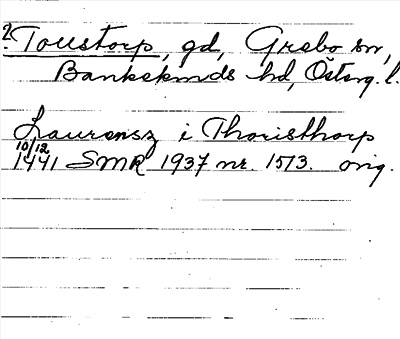 2. Toustorp, gd, Grebo sn,
Bankekinds hd, Österg. l.
Laurensz i Thoristhorp
10/12
1441 SMR 1937 nr. 1513. orig.